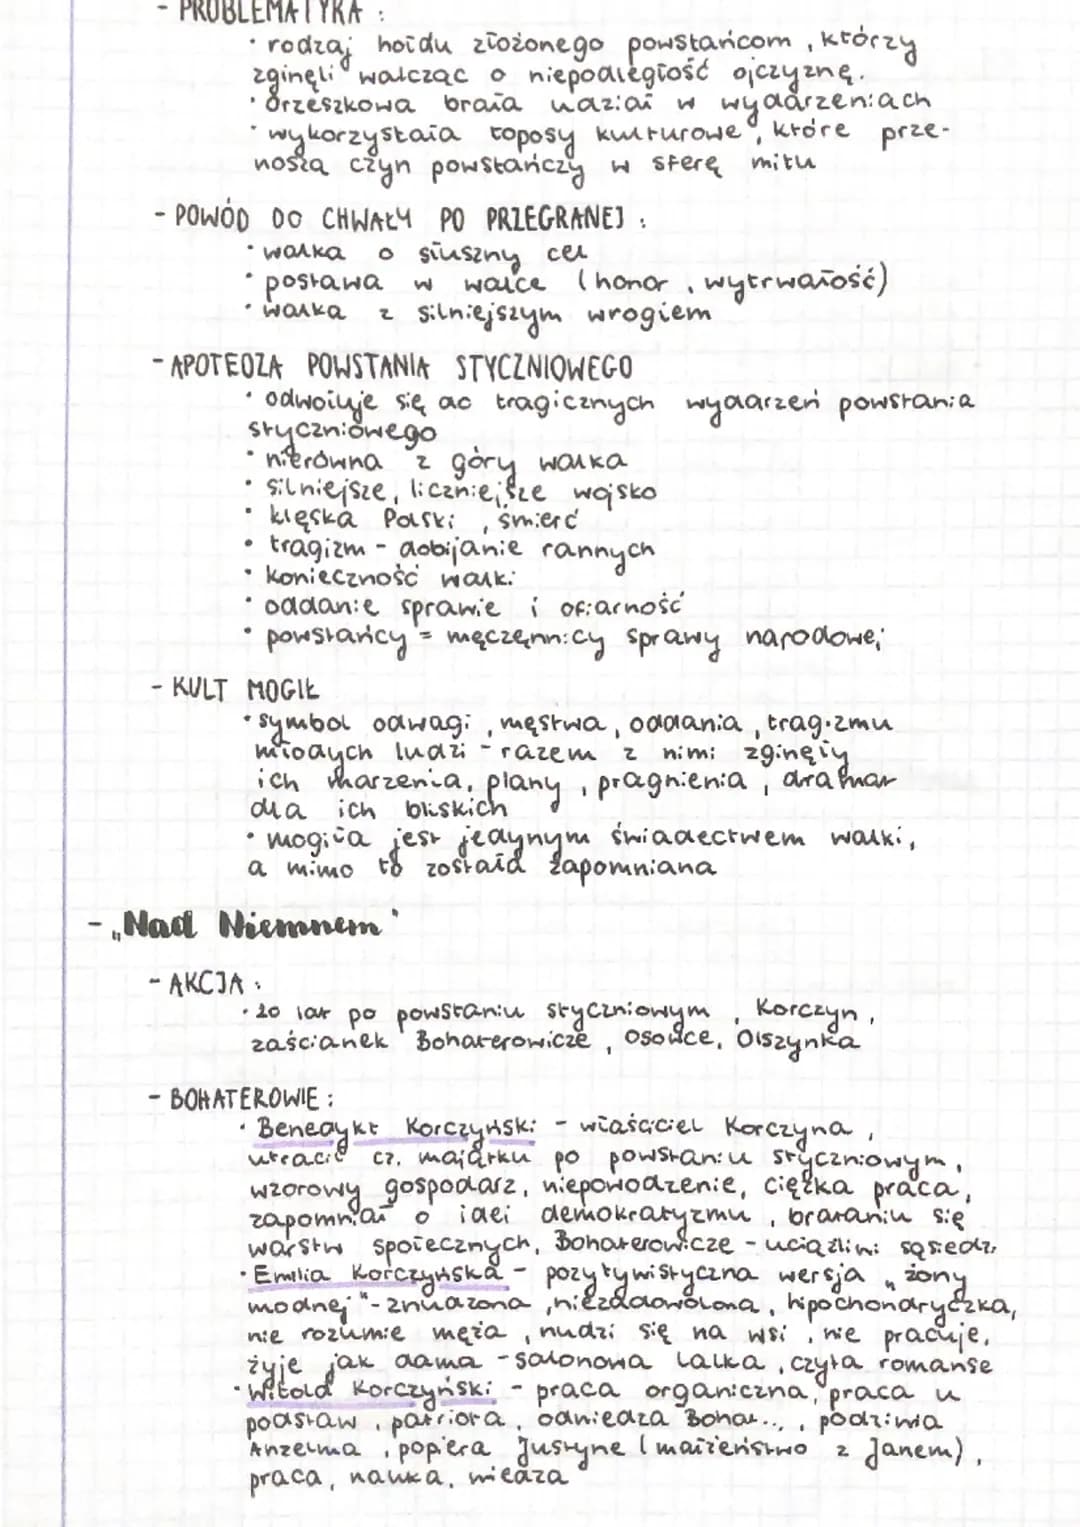 - PROBLEMATYKA :
• rodzaj hołdu złożonego powstańcom, którzy
zginęli walcząc o niepodległość ojczyznę.
• Orzeszkowa brała udział w wydarzeniach
• wykorzystała toposy kulturowe, które prze-
noszą czyn powstańczy w sferę mitu
- POWÓD DO CHWAŁY PO PRZEGRANEJ :
• walka o słuszny cel
• postawa w walce (honor, wytrwałość)
• walka z silniejszym wrogiem
- APOTEOZA POWSTANIA STYCZNIOWEGO
• odwołuje się do tragicznych wydarzeń powstania
styczniowego
• nierówna z góry walka
• silniejsze, liczniejsze wojsko
• klęska Polski, śmierć
• tragizm - dobijanie rannych
• konieczność walki
• oddanie sprawie i ofiarność
• powstańcy = męczennicy sprawy narodowej
- KULT MOGIŁ
• symbol odwagi, męstwa, oddania, tragizmu
młodych ludzi - razem z nimi zginęły
ich marzenia, plany, pragnienia, dramat
dla ich bliskich
• mogiła jest jedynym świadectwem walki,
a mimo to została zapomniana
- „Nad Niemnem"
- AKCJA :
• 20 lat po powstaniu styczniowym, Korczyn,
zaścianek Bohaterowicze, Osowce, Olszynka
- BOHATEROWIE :
• Benedykt Korczyński - właściciel Korczyna,
utracił cz. majątku po powstaniu styczniowym,
wzorowy gospodarz, niepowodzenie, ciężka praca,
zapomniał o idei demokratyzmu, brataniu się
warstw społecznych, Bohaterowicze - uciążliwi sąsiedzi
• Emilia Korczyńska - pozytywistyczna wersja „żony
modnej" - znudzona, niezadowolona, hipochondryczka,
nie rozumie męża, nudzi się na wsi, nie pracuje,
żyje jak dama - salonowa lalka, czyta romanse
• Witold Korczyński - praca organiczna, praca u
podstaw, patriota, odwiedza Bohat..., podziwia
Anzelma, popiera Justynę (małżeństwo z Janem),
praca, nauka, wiedza